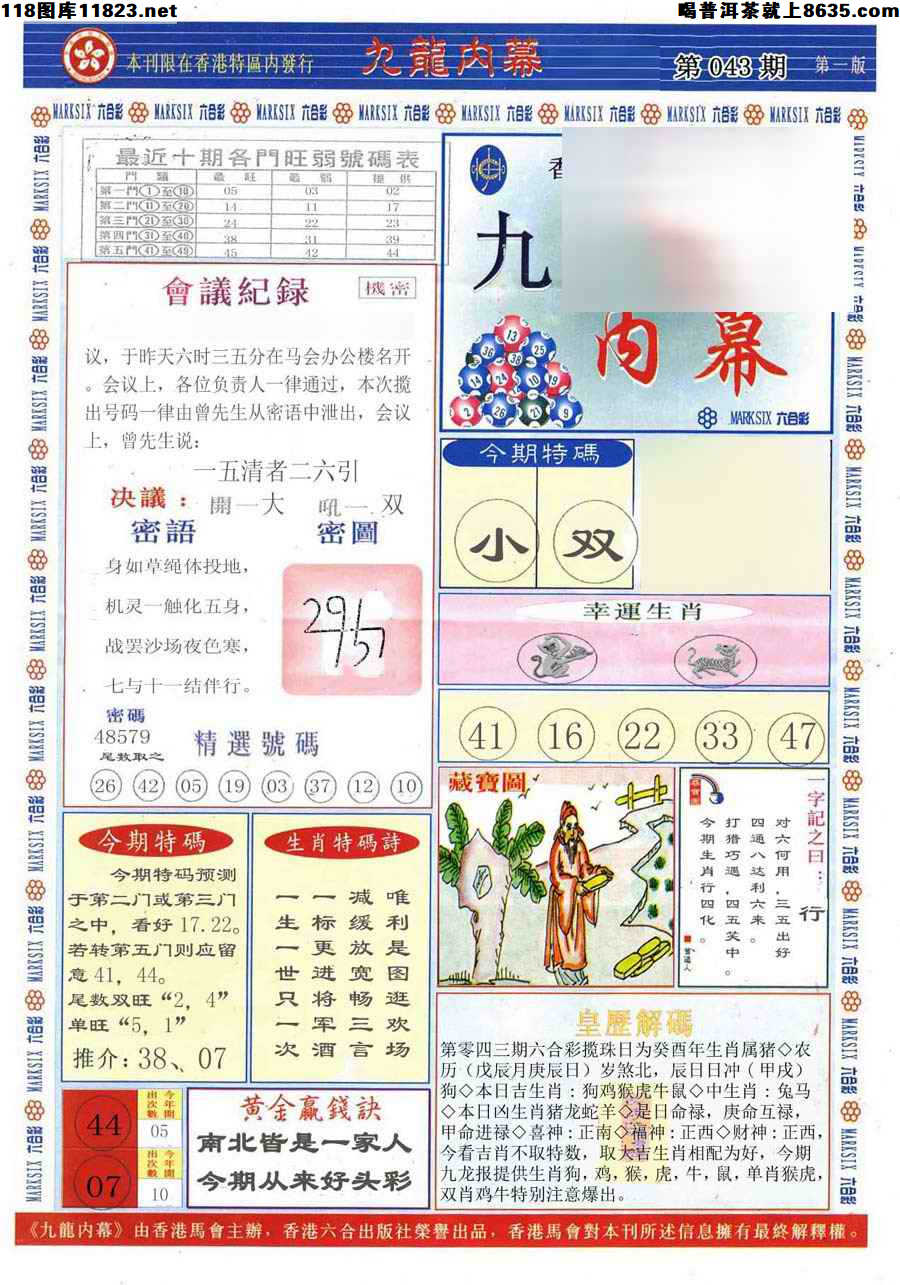 118图库11823.net
喝普洱茶就上8635.com
本刊限在香港特區内發行
九龍内幕
第 043 期
第一版
MARKSIX 六合彩 MARKSIX 六合彩 MARKSIX 六合彩 MARKSIX 六合彩 MARKSIX 六合彩 MARKSIX 六合彩 MARKSIX 六合彩 MARKSIX 六合彩
最近十期各門旺弱號碼表
門 類 最 旺 最 弱 提 供
第一門①至⑩ 05 03 02
第二門⑪至⑳ 14 11 17
第三門㉑至㉚ 24 22 23
第四門㉛至㊵ 38 31 39
第五門㊶至㊾ 45 42 44
會議紀録
機密
议，于昨天六时三五分在马会办公楼名开
。会议上，各位负责人一律通过，本次搅
出号码一律由曾先生从密语中泄出，会议
上，曾先生说：
一五清者二六引
决議： 開一大 吼一 双
密語 密圖
身如草绳体投地，
机灵一触化五身，
战罢沙场夜色寒，
七与十一结伴行。
密碼
48579
尾数取之
精選號碼
26 42 05 19 03 37 12 10
九
内幕
13
36 38 25
14 24 10 19
2 26 27 9
MARKSIX 六合彩
今期特碼
小 双
幸運生肖
41 16 22 33 47
藏寶圖
一字記之曰：行
对六何用，三五出好
四通八达利六来。
打猎巧遇，四五笑中。
今期生肖行四化。
曾道人
今期特碼
今期特码预测
于第二门或第三门
之中，看好 17.22。
若转第五门则应留
意 41，44。
尾数双旺“2，4”
单旺“5，1”
推介：38、07
生肖特碼詩
唯利是图逛欢场
减缓放宽畅三言
一标更进将军酒
一生一世只一次
44
今年開出次數
05
07
今年開出次數
10
黄金贏錢訣
南北皆是一家人
今期从来好头彩
皇歷解碼
第零四三期六合彩搅珠日为癸酉年生肖属猪◇农
历（戊辰月庚辰日）岁煞北，辰日日冲（甲戌）
狗◇本日吉生肖：狗鸡猴虎牛鼠◇中生肖：兔马
◇本日凶生肖猪龙蛇羊◇是日命禄，庚命互禄，
甲命进禄◇喜神：正南◇福神：正西◇财神：正西，
今看吉肖不取特数，取大吉生肖相配为好，今期
九龙报提供生肖狗，鸡，猴，虎，牛，鼠，单肖猴虎，
双肖鸡牛特别注意爆出。
《九龍内幕》由香港馬會主辦，香港六合出版社榮譽出品，香港馬會對本刊所述信息擁有最終解釋權。